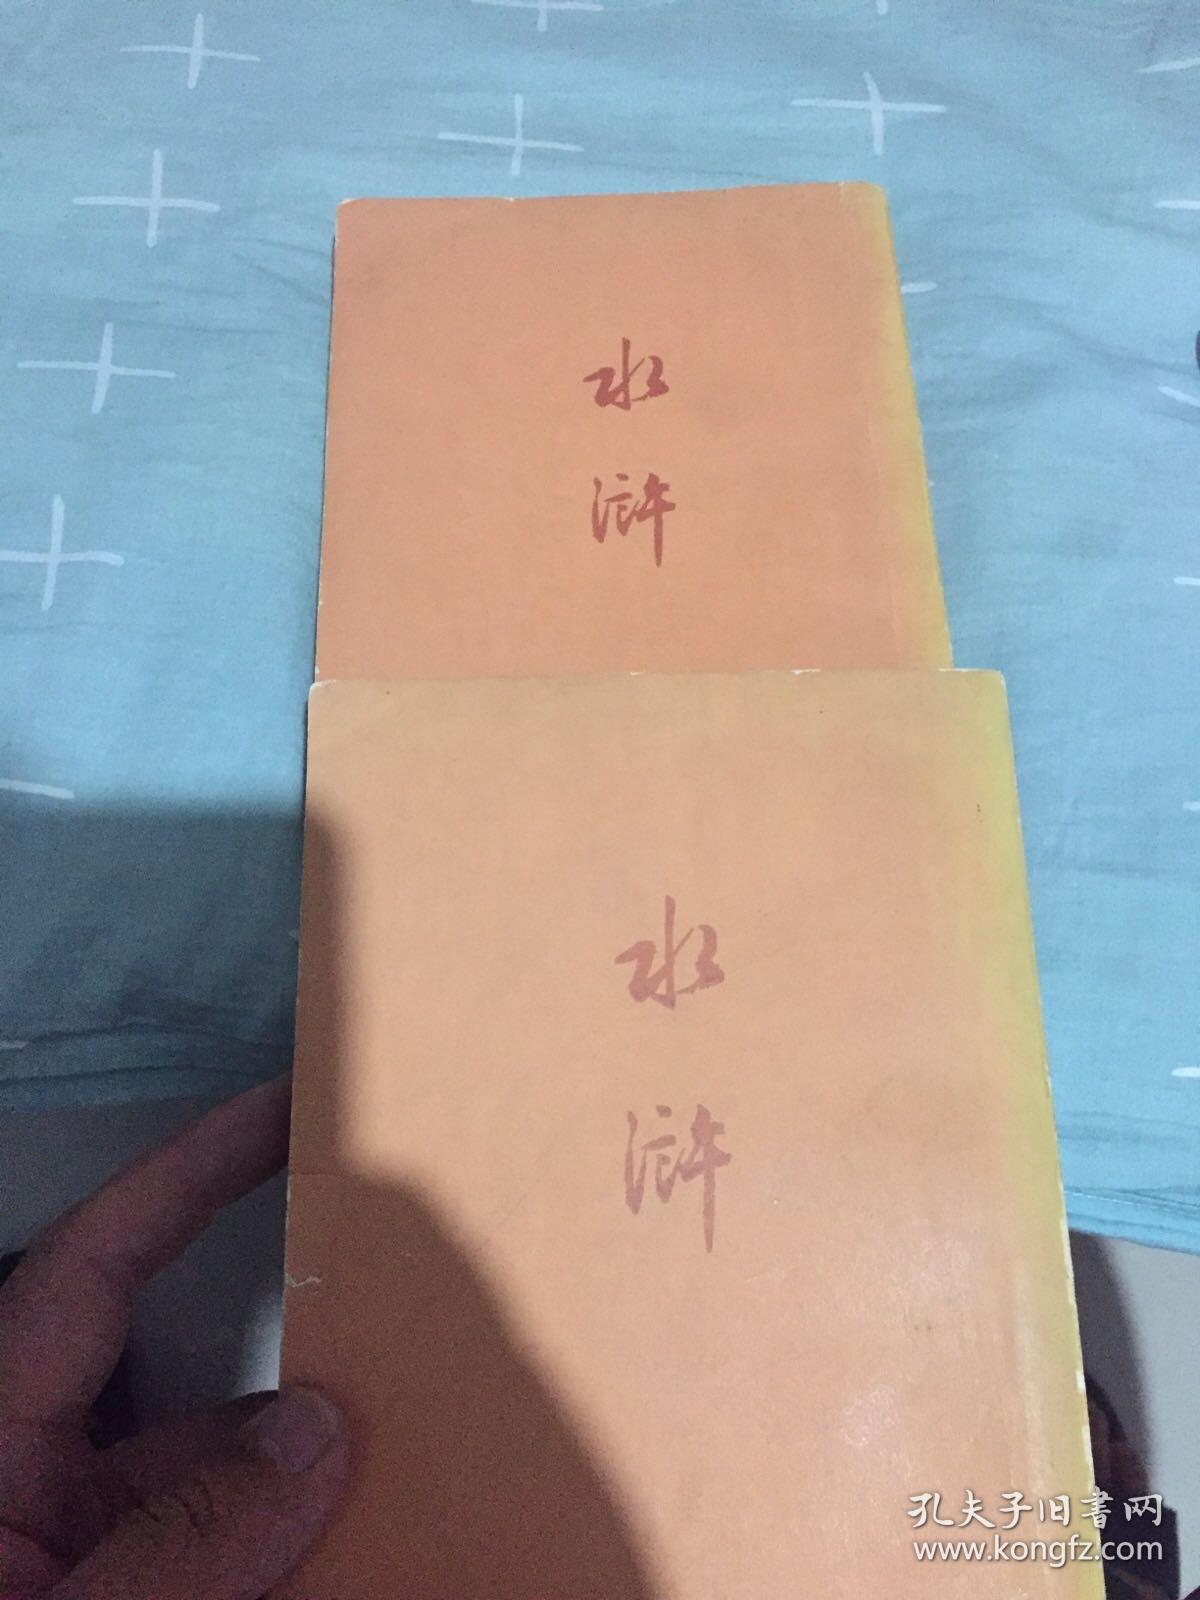 水
浒
水
浒
孔夫子旧書网
www.kongfz.com